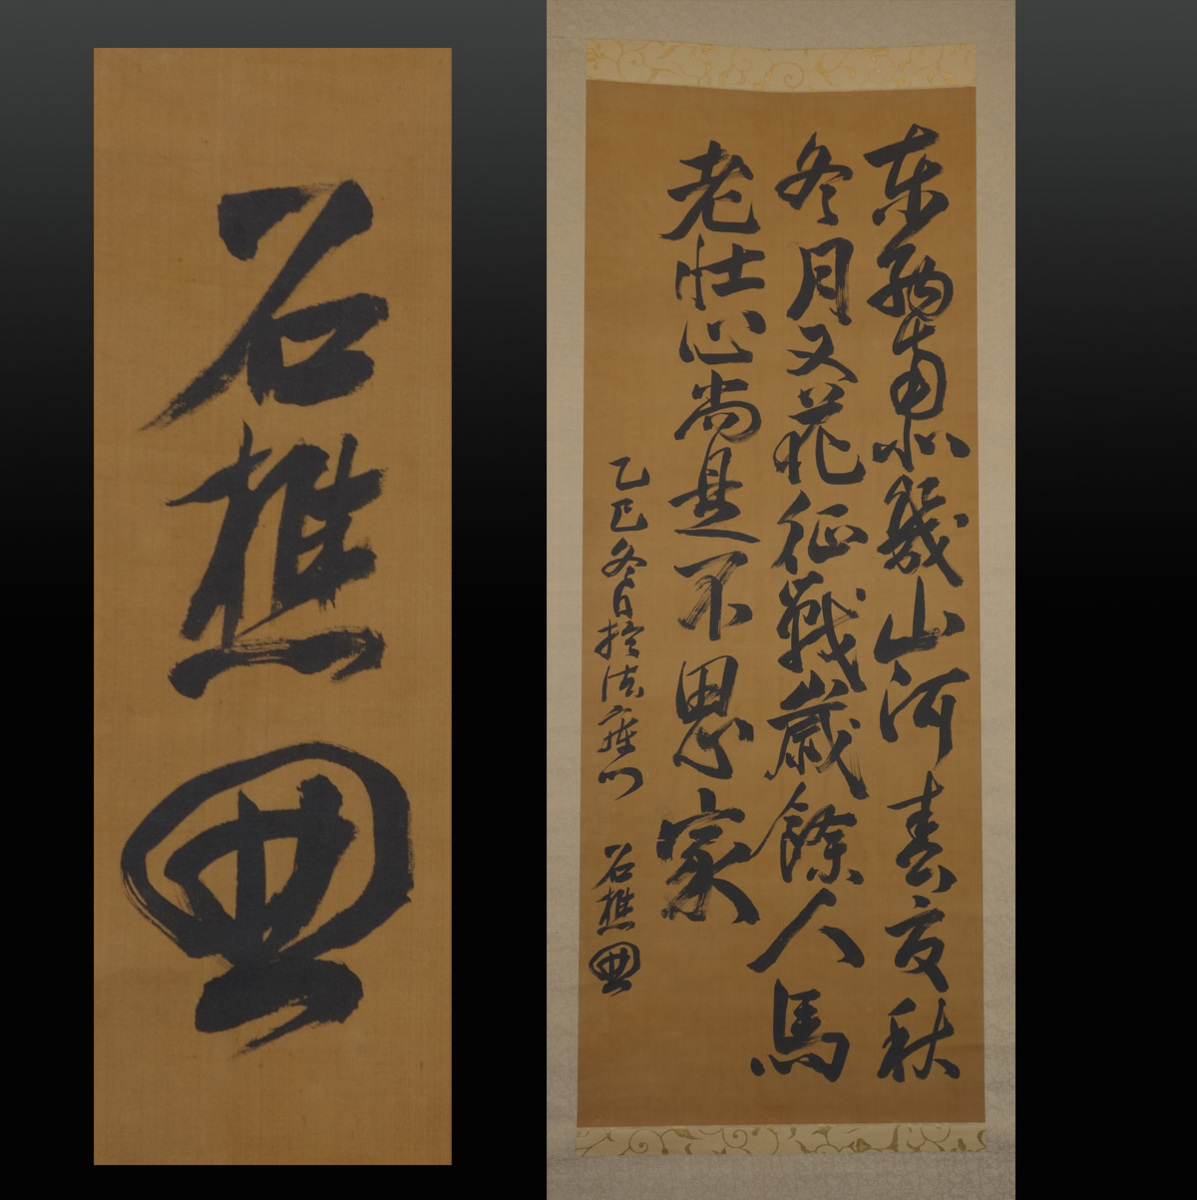 石樵典
東西南北幾山河春夏秋
冬月又花征戰歳餘人馬
老壮心尚是不思家
乙巳冬日於法庫門 石樵典